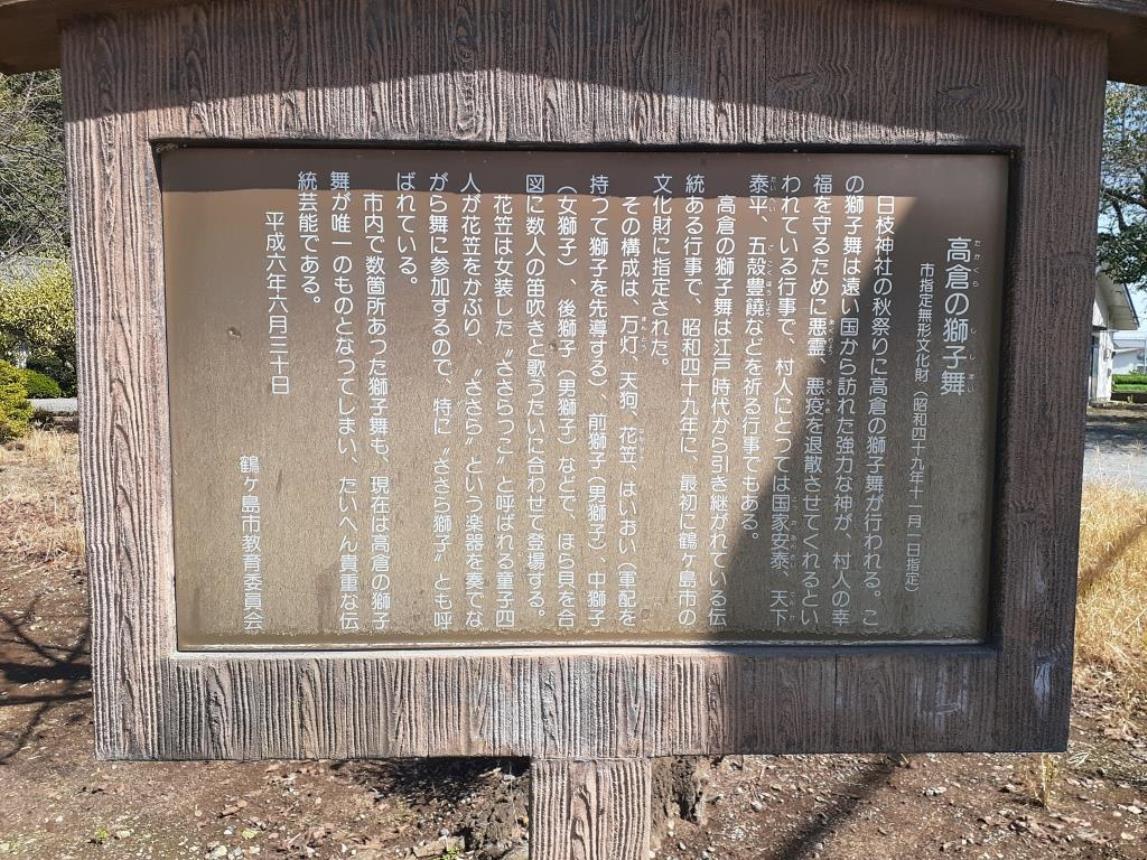 高倉の獅子舞
市指定無形文化財（昭和四十九年十一月一日指定）
日枝神社の秋祭りに高倉の獅子舞が行われる。こ
の獅子舞は遠い国から訪れた強力な神が、村人の幸
福を守るために悪霊、悪疫を退散させてくれるとい
われている行事で、村人にとっては国家安泰、天下
泰平、五穀豊饒などを祈る行事でもある。
高倉の獅子舞は江戸時代から引き継がれている伝
統ある行事で、昭和四十九年に、最初に鶴ヶ島市の
文化財に指定された。
その構成は、万灯、天狗、花笠、はいおい（軍配を
持って獅子を先導する）、前獅子（男獅子）、中獅子
（女獅子）、後獅子（男獅子）などで、ほら貝を合
図に数人の笛吹きと歌うたいに合わせて登場する。
花笠は女装した〝ささらっこ〟と呼ばれる童子四
人が花笠をかぶり、〝ささら〟という楽器を奏でな
がら舞に参加するので、特に〝ささら獅子〟とも呼
ばれている。
市内で数箇所あった獅子舞も、現在は高倉の獅子
舞が唯一のものとなってしまい、たいへん貴重な伝
統芸能である。
平成六年六月三十日
鶴ヶ島市教育委員会